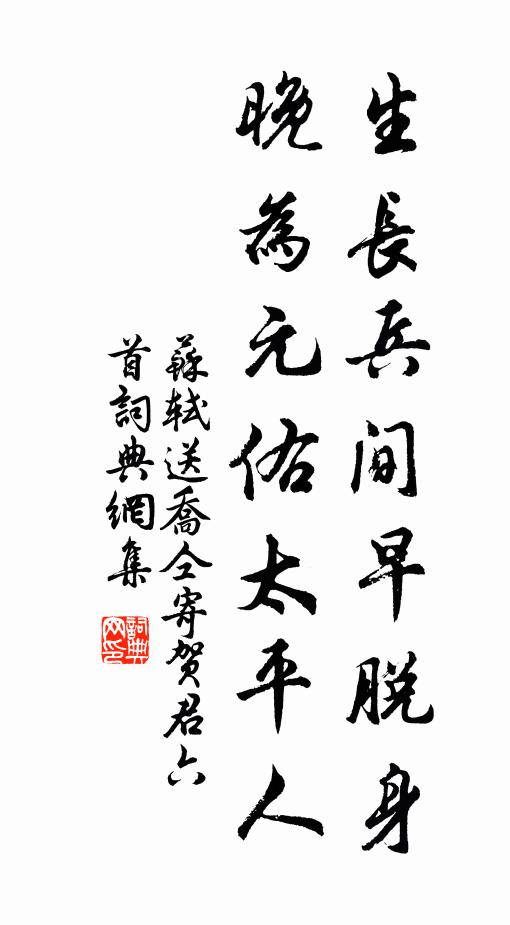 生長兵間早脫身
晚為元佑太平人
蘇軾送喬仝寄賀君六
首詞典網集
詞典
网印